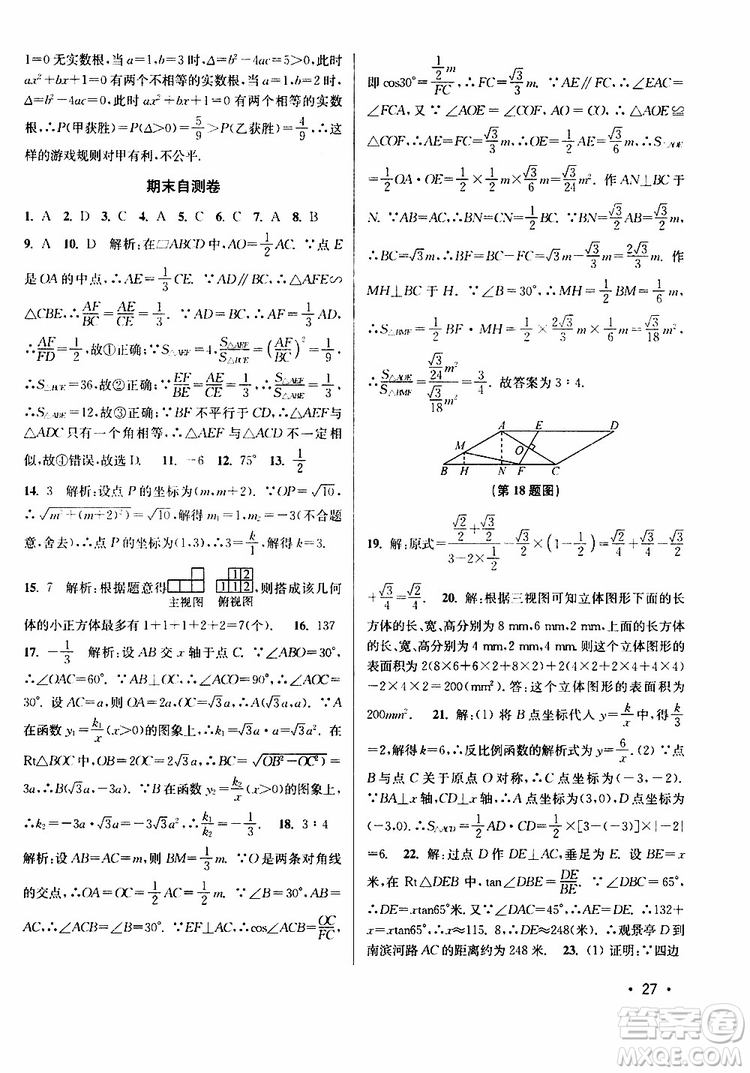 1=0 无实数根,当 a=1,b=3 时,Δ=b²-4ac=5>0,此时
ax²+bx+1=0 有两个不相等的实数根,当 a=1,b=2 时,
ax²+bx+1=0 有两个相等的实数根,Δ=b²-4ac=0,此时
根,∴P(甲获胜)=P(Δ>0)=5/9>P(乙获胜)=4/9,∴这
样的游戏规则对甲有利,不公平.
期末自测卷
1. A 2. D 3. C 4. A 5. C 6. C 7. A 8. B
9. A 10. D 解析:在▱ABCD 中,AO=1/2AC.∵点 E
是 OA 的中点,∴AE=1/3CE.∵AD∥BC,∴△AFE∽
△CBE,∴AF/BC=AE/CE=1/3.∵AD=BC,∴AF=1/3AD,
∴AF/FD=1/2,故①正确;∵S△AEF=4,S△AEF/S△BCE=(AF/BC)²=1/9,
∴S△BCE=36,故②正确;∵EF/BE=AE/CE=1/3,∴S△AEF/S△ABE=1/3,
∴S△ABE=12,故③正确;∵BF 不平行于 CD,∴△AEF与
△ADC 只有一个角相等,∴△AEF 与△ADC 不一定相
似,故④错误,故选 D. 11. -6 12. 75° 13. 1/2
14. 3 解析:设点 P 的坐标为(m,m+2).∵OP=√10,
∴√(m²+(m+2)²)=√10,解得 m₁=1,m₂=-3(不合题
意,舍去)∴点 P 的坐标为(1,3),∴3=k/1,解得 k=3.
15. 7 解析:根据题意得 主视图 1 1 2 2 俯视图 则搭成该几何
体的小正方体最多有 1+1+1+2+2=7(个). 16. 137
17. -1/3 解析:设 AB 交 x 轴于点 C.∵∠ABO=30°,
∴∠OAC=60°.∵AB⊥OC,∴∠ACO=90°,∴∠AOC=
30°.设 AC=a,则 OA=2a,OC=√3a,∴A(√3a,a).∵A
在函数 y₁=k₁/x(x>0)的图象上,∴k₁=√3a·a=√3a².在
Rt△BOC 中,OB=2OC=2√3a,∴BC=√(OB²-OC²)=
3a,∴B(√3a,-3a).∵B 在函数 y₂=k₂/x(x>0)的图象上,
∴k₂=-3a·√3a=-3√3a²,∴k₁/k₂=-1/3. 18. 3∶4
解析:设 AC=m,则 BM=1/3m.∵O 是两条对角线
的交点,∴OA=OC=1/2AC=1/2m.∵∠B=30°,AB=
AC,∴∠ACB=∠B=30°.∵EF⊥AC,∴cos∠ACB=OC/FC,
即 cos30°=(1/2m)/FC,∴FC=√3/3m.∵AE∥FC,∴∠EAC=
∠FCA,又∵∠AOE=∠COF,AO=CO,∴△AOE≌
△COF,∴AE=FC=√3/3m,∴OE=1/2AE=√3/6m,∴S△AOE
=1/2OA·OE=1/2×1/2m×√3/6m=√3/24m².作 AN⊥BC 于
N.∵AB=AC,∴BN=CN=1/2BC.∵CN=√3/2AC=√3/2m,
∴BC=√3m,∴BF=BC-FC=√3m-√3/3m=2√3/3m.作
MH⊥BC 于 H.∵∠B=30°,∴MH=1/2BM=1/6m,
∴S△BMF=1/2BF·MH=1/2×2√3/3m×1/6m=√3/18m²,
∴S△AOE/S△BMF=(√3/24m²)/(√3/18m²)=3/4.故答案为 3∶4.
A E D
M O
B H N F C
(第 18 题图)
19. 解:原式=(√2/2+√3/2)/(3-2×1/2)-√2/2×√2/2×(1-1/2)=√2/4
+√3/4-1/4. 20. 解:根据三视图可知立体图形下面的长
方体的长、宽、高分别为 8 mm,6 mm,2 mm,上面的长方体
的长、宽、高分别为 4 mm,2 mm,4 mm,则这个立体图形的
表面积为 2(8×6+6×2+8×2)+2(4×2+2×4+4×4)
-2×4×2=200(mm²).答:这个立体图形的表面积为
200mm². 21. 解:(1) 将 B 点坐标代入 y=k/x,得 2=
k/3,∴k=6,∴反比例函数的解析式为 y=6/x.(2) ∵点
B(3,2),点 B 与点 C 关于原点 O 对称,∴C(-3,-2),
∵BA⊥x 轴,CD⊥x 轴,∴点 A 坐标为(3,0),点 D(-3,
0),∴S△ACD=1/2AD·CD=1/2×[3-(-3)]×|-2|
=6. 22. 解:过点 D 作 DE⊥AC,垂足为 E.设 BE=x
米,在 Rt△DEB 中,tan∠DBE=DE/BE.∵∠DBC=65°,
∴DE=xtan65°米,又∵∠DAC=45°,∴AE=DE,∴132+
x=xtan65°,∴x≈115.8,∴DE≈248(米),∴观景亭 D 到
南滨河路 AC 的距离约为 248 米. 23. (1) 证明:∵四边
· 27 ·
答案圈
MXQE.COM